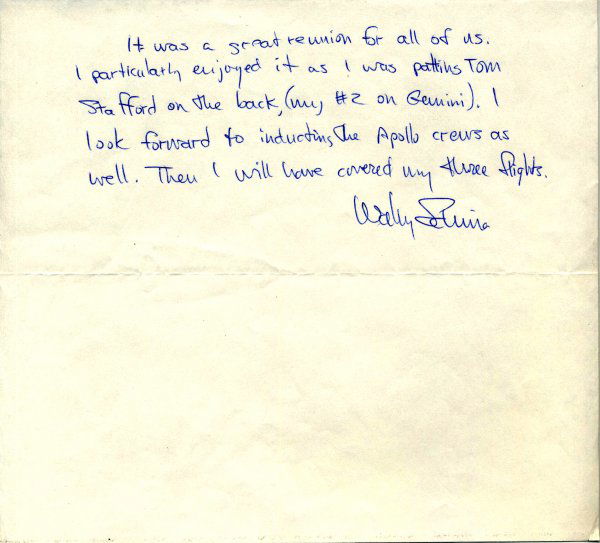 It was a great reunion for all of us.
I particularly enjoyed it as I was patting Tom
Stafford on the back, (my #2 on Gemini). I
look forward to inducting the Apollo crews as
well. Then I will have covered my three flights.
Wally Schirra